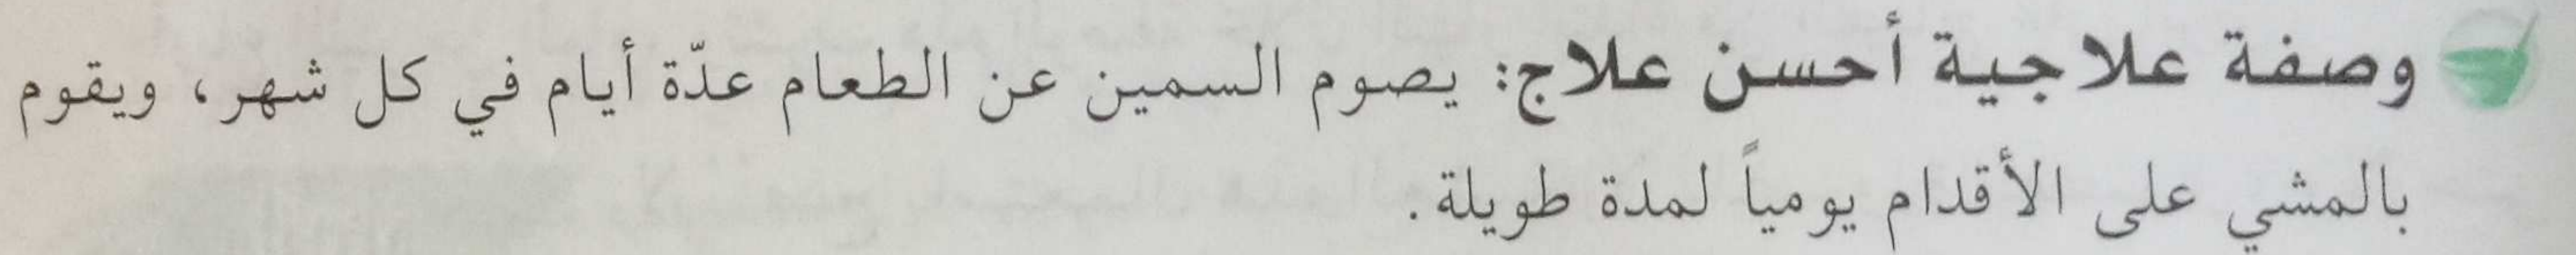 وصفة علاجية أحسن علاج: يصوم السمين عن الطعام عدّة أيام في كل شهر، ويقوم
بالمشي على الأقدام يومياً لمدة طويلة.